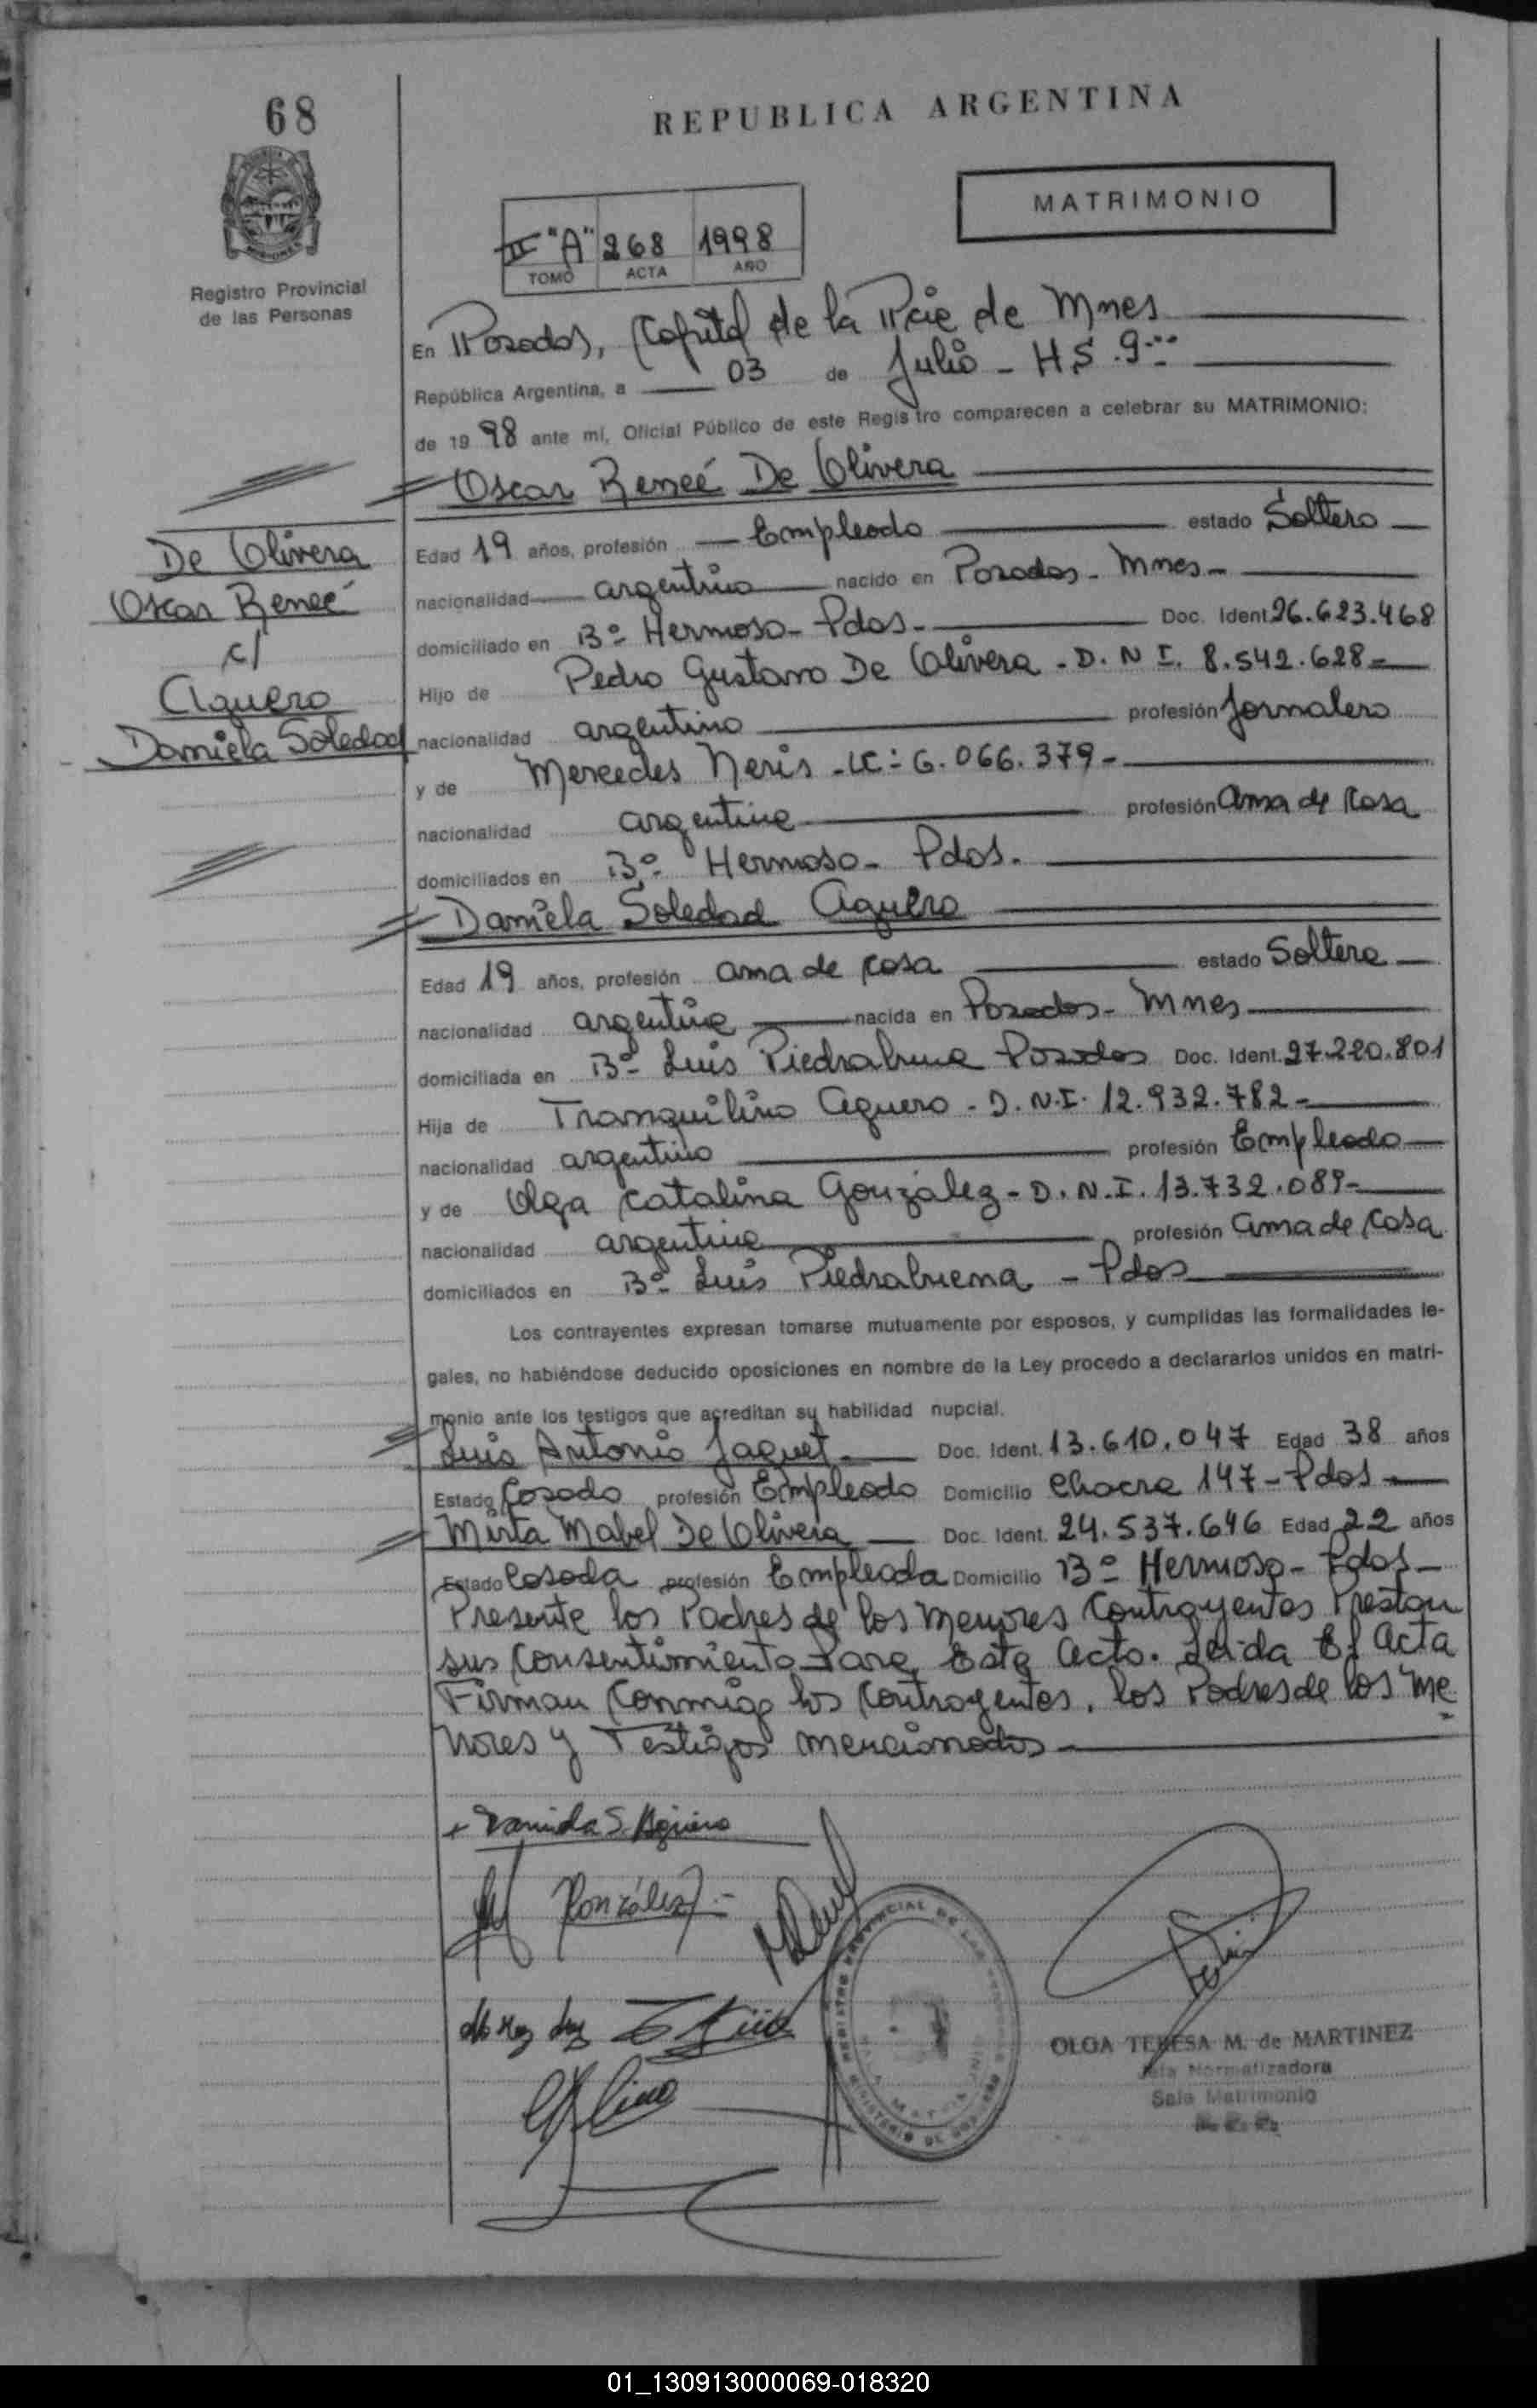 68
REPUBLICA ARGENTINA
MATRIMONIO
II "A" 268 1998
TOMO ACTA AÑO
Registro Provincial
de las Personas
En Posadas, Capital de la Pcie de Mnes
República Argentina, a 03 de Julio - HS. 9
de 1998 ante mí, Oficial Público de este Registro comparecen a celebrar su MATRIMONIO:
Oscar Reneé De Olivera
De Olivera
Oscar Reneé
c/
Aguero
Daniela Soledad
Edad 19 años, profesión Empleado estado Soltero
nacionalidad argentino nacido en Posadas - Mnes -
domiciliado en Bº Hermoso - Pdas - Doc. Ident. 26.623.468
Hijo de Pedro Gustavo De Olivera - D.N.I. 8.542.628 -
nacionalidad argentino profesión Jornalero
y de Mercedes Neris - LC: 6.066.379 -
nacionalidad argentina profesión ama de casa
domiciliados en Bº Hermoso - Pdas.
Daniela Soledad Aguero
Edad 19 años, profesión ama de casa estado Soltera
nacionalidad argentina nacida en Posadas - Mnes
domiciliada en Bº Luis Piedrabuena Posadas Doc. Ident. 27.220.801
Hija de Tranquilino Aguero - D.N.I. 12.932.782 -
nacionalidad argentino profesión Empleado
y de Olga Catalina González - D.N.I. 13.732.089 -
nacionalidad argentina profesión ama de casa
domiciliados en Bº Luis Piedrabuena - Pdas
Los contrayentes expresan tomarse mutuamente por esposos, y cumplidas las formalidades le-
gales, no habiéndose deducido oposiciones en nombre de la Ley procedo a declararlos unidos en matri-
monio ante los testigos que acreditan su habilidad nupcial.
Luis Antonio Jaquet Doc. Ident. 13.610.047 Edad 38 años
Estado Casado profesión Empleado Domicilio Chacra 147 - Pdas
Mirta Mabel De Olivera Doc. Ident. 24.537.646 Edad 22 años
Estado Casada profesión Empleada Domicilio Bº Hermoso - Pdas -
Presente los Padres de los menores Contrayentes Prestan
sus Consentimiento Para Este Acto. Leida El Acta
Firman Conmigo los Contrayentes, los Padres de los me
nores y Testigos mencionados
Daniela S. Agüero
González
OLGA TERESA M. de MARTINEZ
Jefa Normatizadora
Sala Matrimonio
01_130913000069-018320